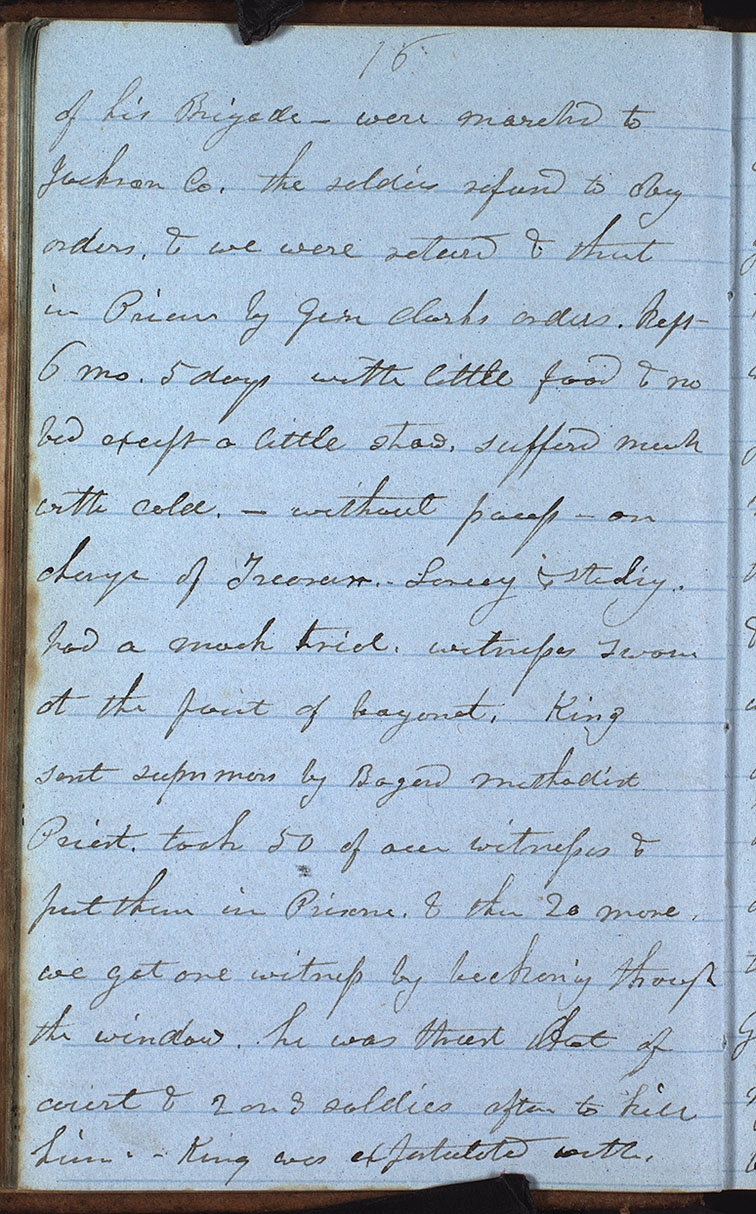 15
of his Brigade — were marchd to
Jackson Co. the soldiers refused to obey
orders. & we were returd & thrust
in Prison by Gen Clarks orders. Kept
6 mo. 5 days with little food & no
bed except a little straw. sufferd much
with cold. — without process — on
charge of Treason. - &
had a mock trial. witnesses sworn
at the point of bayonet. King
sent summons by Bogard methodist
Priest. took 50 of our witnesses &
put them in Prison. & then 20 more.
we got one witness by beckoning through
the window. he was thrust out of
court & 2 or 3 soldiers after to kill
him. - King was expostulated with.